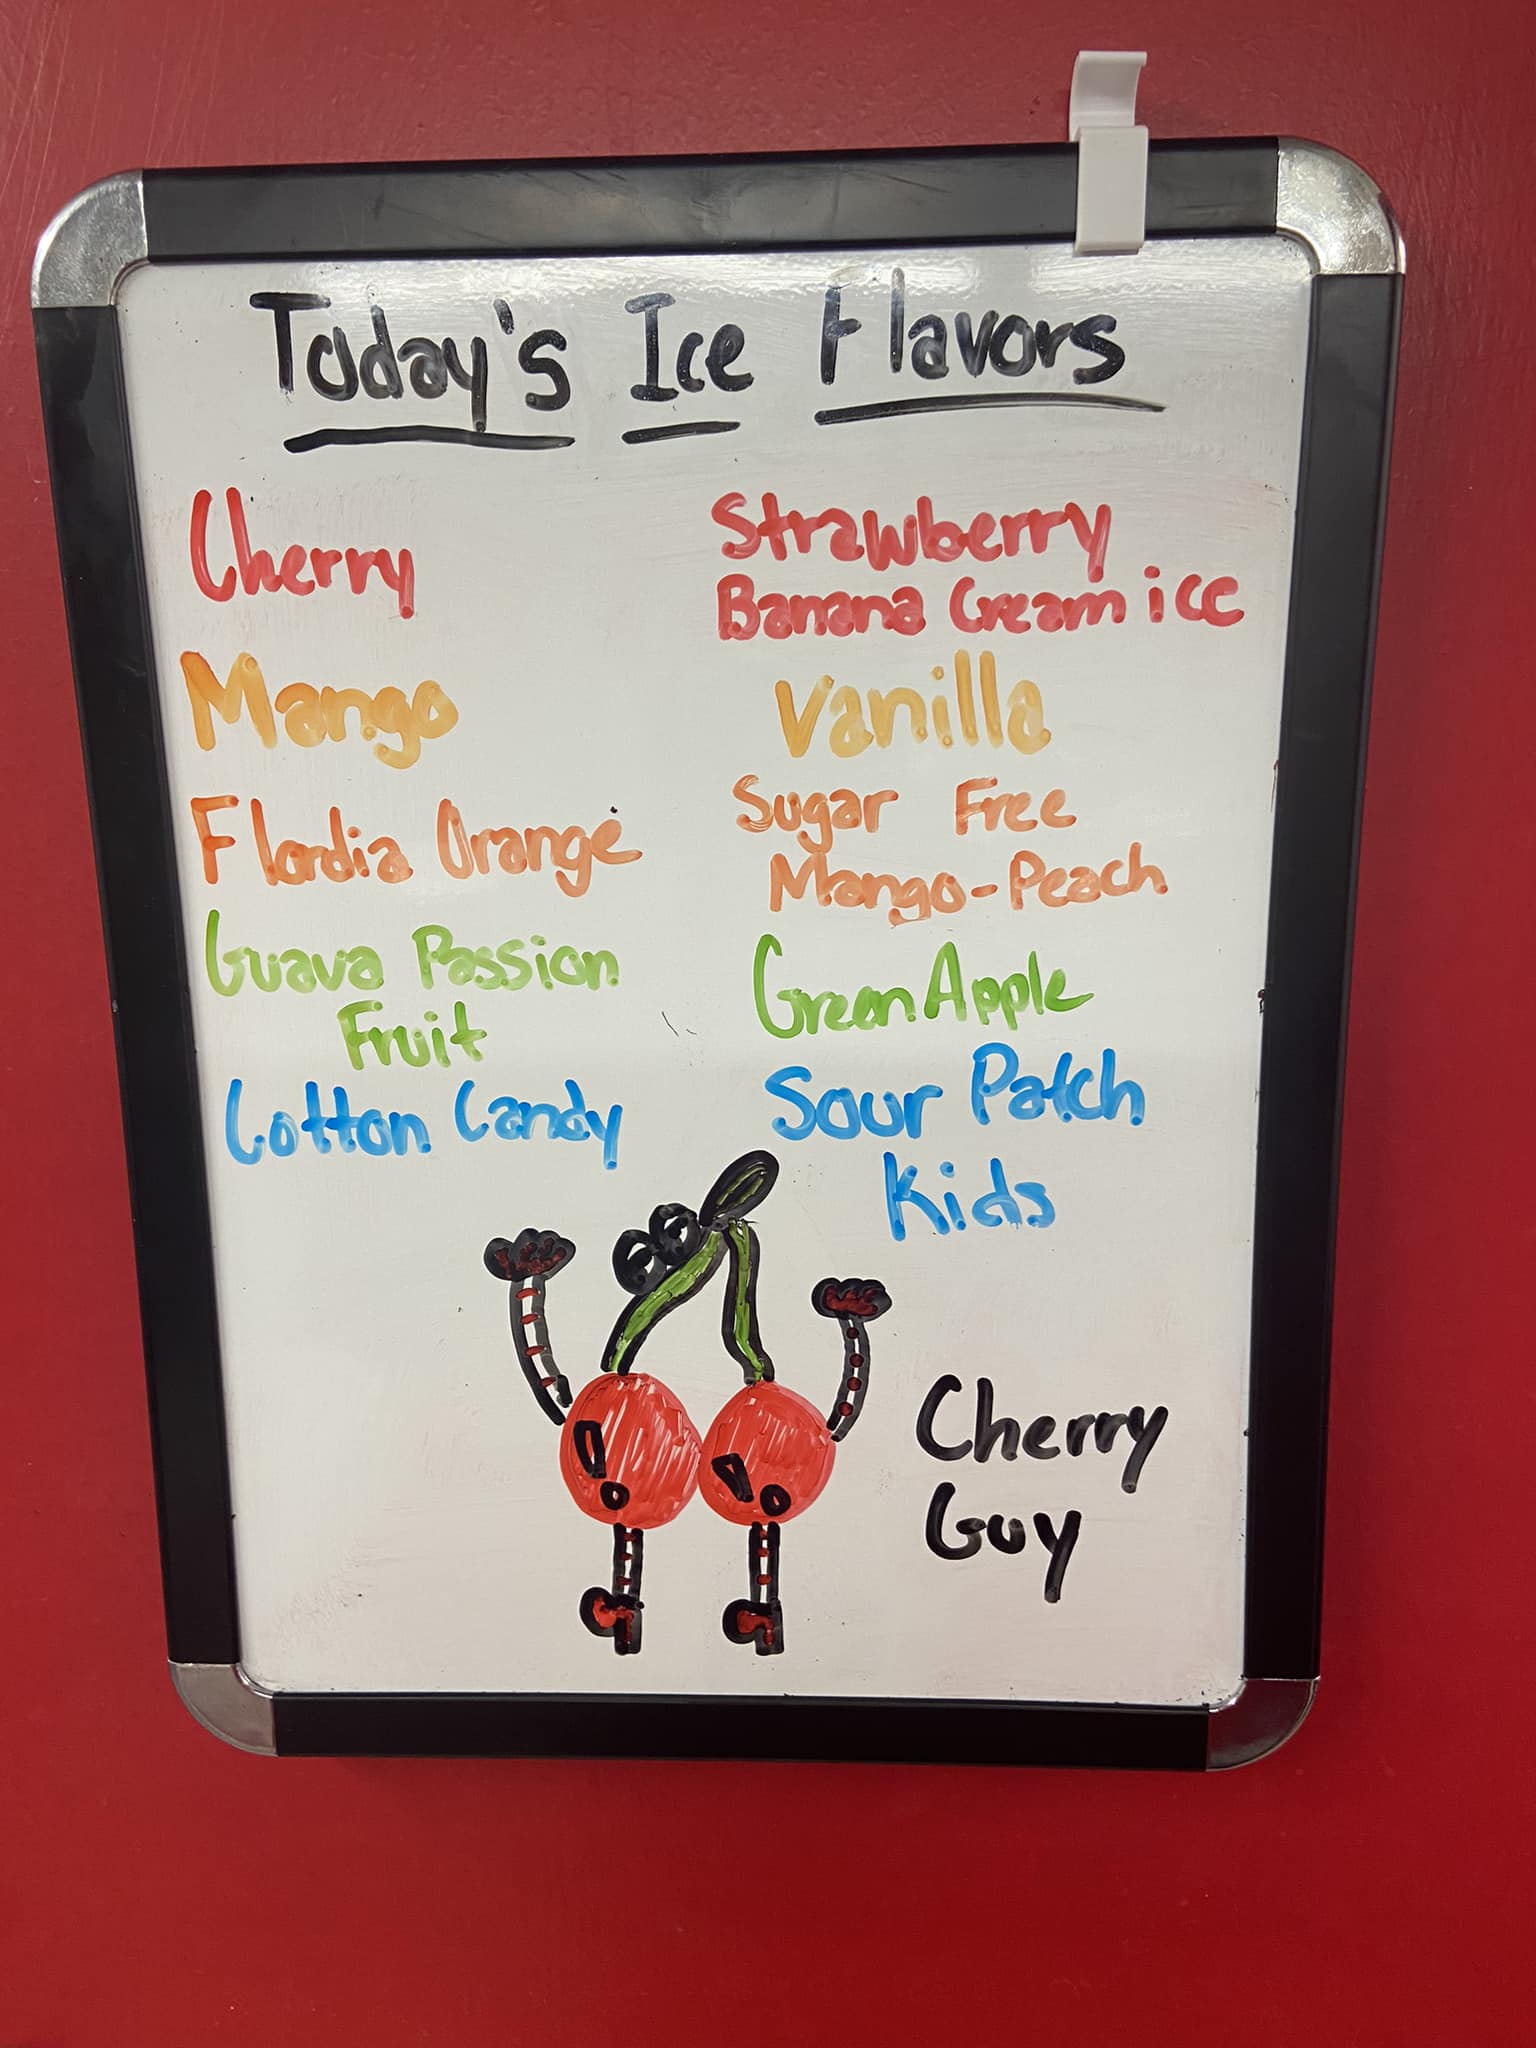 Today's Ice Flavors
Cherry
Mango
Flordia Orange
Guava Passion
Fruit
Cotton Candy
Strawberry
Banana Cream ice
Vanilla
Sugar Free
Mango-Peach
Green Apple
Sour Patch
Kids
Cherry
Guy